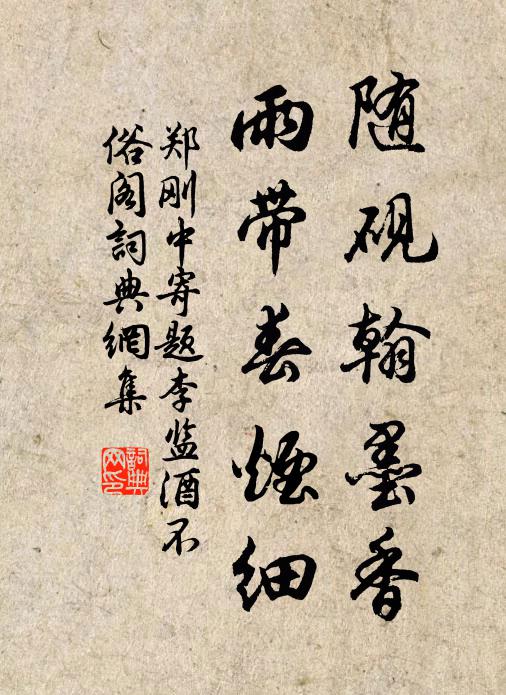 随砚翰墨香
雨带春烟细
郑刚中寄题李监酒不
俗阁詞典網集
詞典
网印